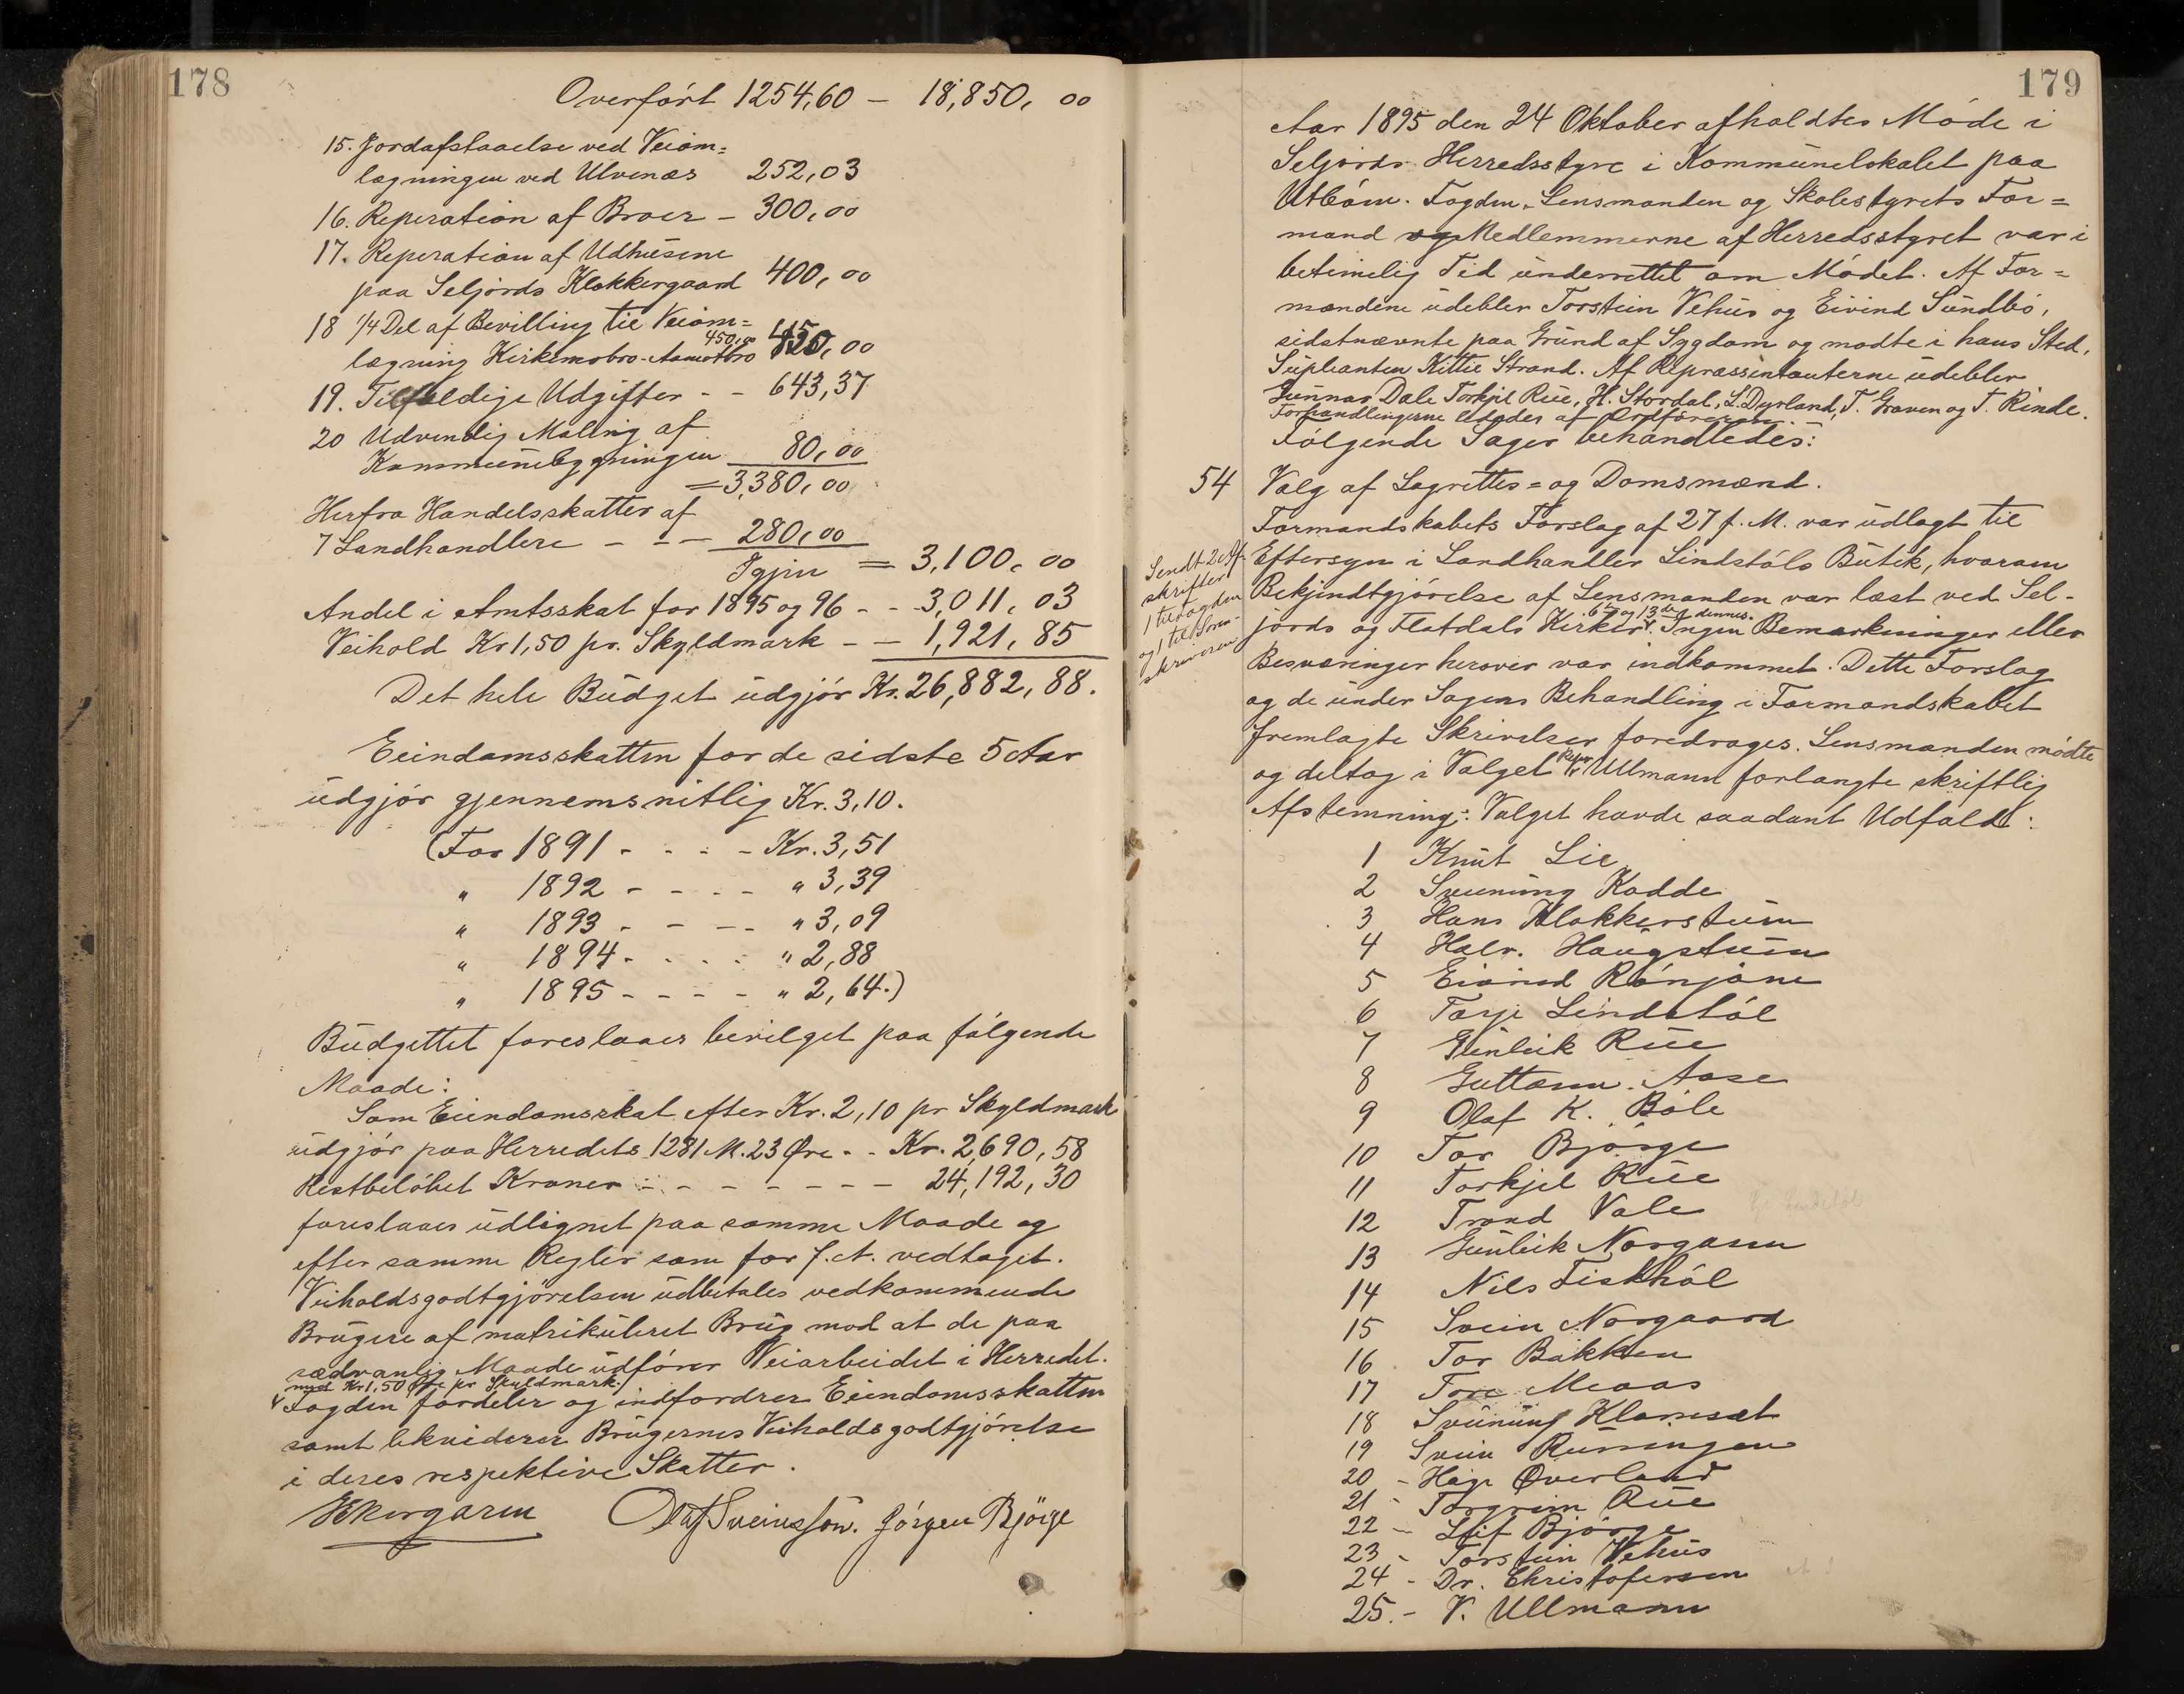 178
Overført 1254,60 – 18,850,00
15. Jordafstaaelse ved Veiom=
lægningen ved Ulvenæs 252,03
16. Reperation af Broer – 300,00
17. Reperation af Udhusene
paa Seljords Klokkergaard 400,00
18 1/4 Del af Bevilling til Veiom=
450,00
lægning Kirkemobro-Aamotbro 450,00
19. Tilfældige Udgifter - - 643,37
20 Udvendig Maling af
Kommunebygningen 80,00
=3,380,00
Herfra Handelsskatter af
7 Landhandlere - - - 280,00
Igjen = 3,100,00
Andel i Amtsskat for 1895 og 96 - - 3,011,03
Veihold Kr 1,50 pr. Skyldmark - - 1,921,85
Det hele Budget udgjør Kr. 26,882,88.
Eeindomsskatten for de sidste 5 Aar
udgjør gjennemsnitlig Kr. 3,10.
(For 1891 - - - - Kr. 3,51
" 1892 - - - - " 3,39
" 1893 - - - - " 3,09
" 1894 - - - - " 2,88
" 1895 - - - - " 2,64.)
Budgettet foreslaaes bevilget paa følgende
Maade:
Som Eiendomsskat efter Kr. 2,10 pr Skyldmark
udgjør paa Herredets 1281 M. 23 Øre - - Kr. 2,690,58
Restbeløbet Kroner - - - - - - - 24,192,30
foreslaaes udlignet paa samme Maade og
efter samme Regler som for f. A. vedtaget.
Veiholdsgodtgjørelsen udbetales vedkommende
Brugere af matrikuleret Brug mod at de paa
sædvanlig Maade udfører Veiarbeidet i Herredet.
med Kr 1,50 Øre pr Skyldmark.
Fogden fordeler og indfordrer Eeindomsskatten
samt lekviderer Brugernes Veiholdsgodtgjørelse
i deres respektive Skatter.
Olaf Sveinsson. Jørgen Bjørge
179
Aar 1895 den 24 Oktober afholdtes Møde i
Seljords Herredsstyre i Kommunelokalet paa
Utbøen. Fogden, Lensmanden og Skolestyrets For=
mand og Medlemmerne af Herredsstyret var i
betimelig Tid underrettet om Mødet. Af For=
mændene udeblev Torstein Vehus og Eivind Sundbø,
sidstnævnte paa Grund af Sygdom og mødte i hans Sted,
Supleanten Kittil Strand. Af Repræssentanterne udeblev
Gunnar Dale Torkjel Rue, H. Stordal, L. Dyrland, T. Graven og T. Rinde.
Forhandlingerne lededes af Ordføreren.
Følgende Sager behandledes:
54 Valg af Lagrettes= og Domsmænd.
Formandskabets Forslag af 27 f. M. var udlagt til
Eftersyn i Landhandler Lindstøls Butik, hvorom
Bekjendtgjørelse af Lensmanden var læst ved Sel-
6te og 13de dennes.
jords og Flatdals Kirker. Ingen Bemærkninger eller
Besværinger herover var indkommet. Dette Forslag
og de under Sagens Behandling i Formandskabet
fremlagte Skrivelser foredroges. Lensmanden mødte
og deltog i Valget. Repr Ullmann forlangte skriftlig
Afstemning. Valget havde saadant Udfald:
Sendt 2 Af-
skrifter
1 til Fogden
og 1 til Soren-
skriveren
1 Knut Lie
2 Sveinung Kodde
3 Hans Klokkerstuen
4 Halv. Haugstuen
5 Eivind Rønjom
6 Torje Lindstøl
7 Gunleik Rue
8 Guttorm Aase
9 Olaf K. Bøle
10 Tor Bjørge
11 Torkjel Rue
12 Trond Vale
13 Gunleik Norgaren
14 Nils Fiskhøl
15 Svein Norgaard
16 Tor Bakken
17 Tore Meaas
18 Sveinung Klomset
19 Svein Runingen
20 - Høge Øverland
21 - Torgrim Rue
22 - Leif Bjørge
23 - Torstein Vehus
24 - Dr. Christofersen
25. - V. Ullmann